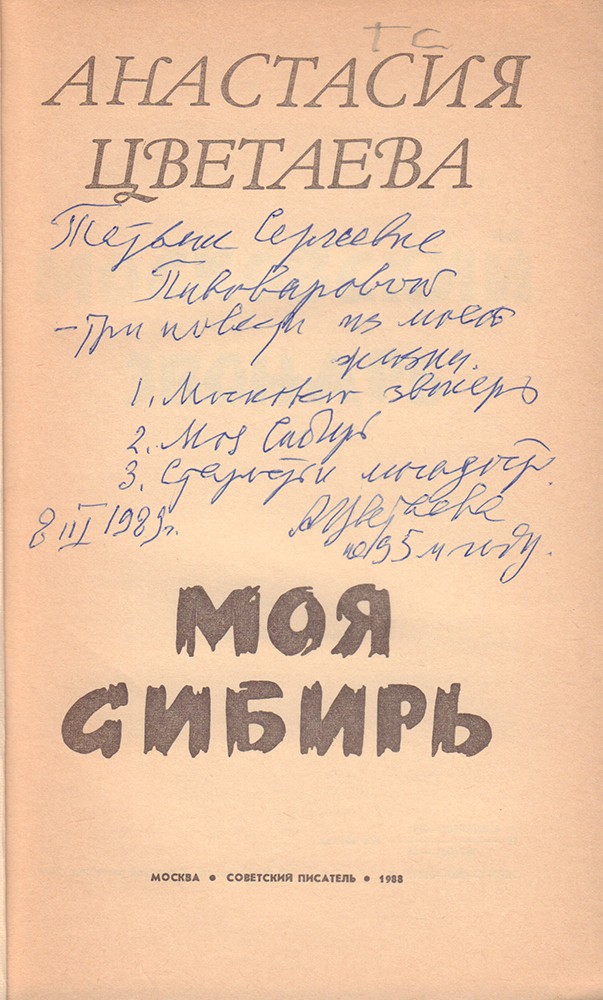 ТС
АНАСТАСИЯ
ЦВЕТАЕВА
Татьяне Сергеевне
Пивоваровой
– Три повести из моей
жизни.
1. Московский звонарь
2. Моя Сибирь
3. Старость и молодость.
8 III 1989г. АЦветаева
на 95м году.
МОЯ
СИБИРЬ
МОСКВА • СОВЕТСКИЙ ПИСАТЕЛЬ • 1988